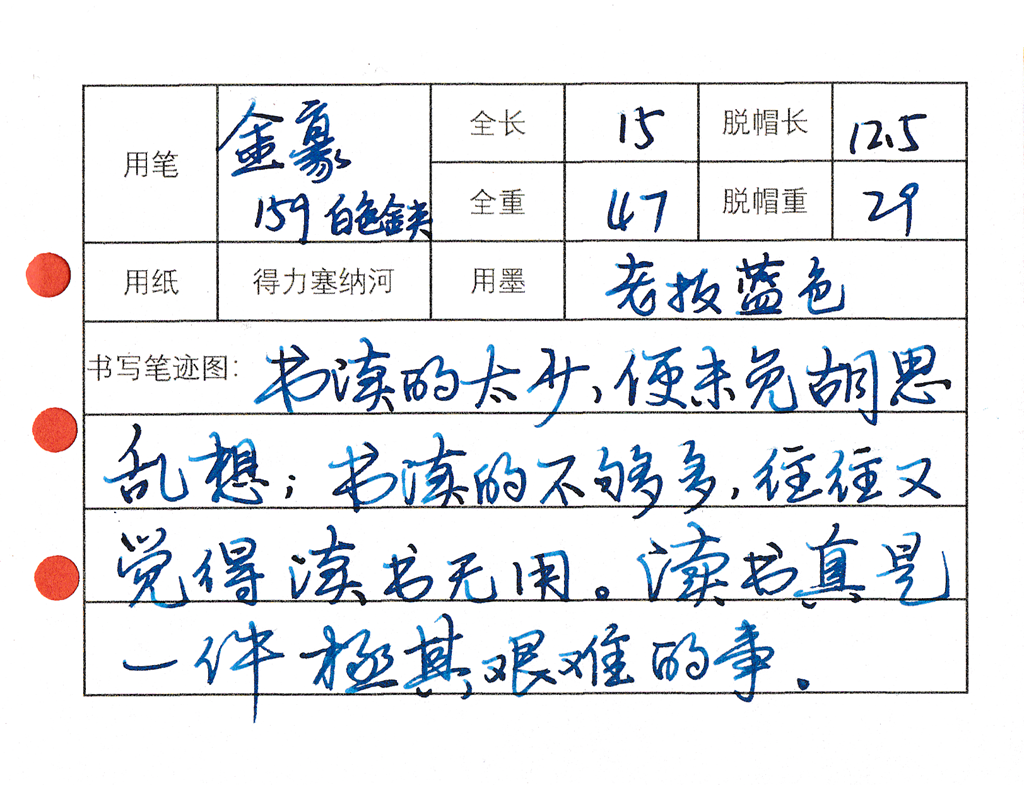 用笔 金豪 159 白色金夹 全长 15 脱帽长 12.5
全重 47 脱帽重 29
用纸 得力塞纳河 用墨 老板蓝色
书写笔迹图: 书读的太少,便未免胡思
乱想;书读的不够多,往往又
觉得读书无用。读书真是
一件极其艰难的事.